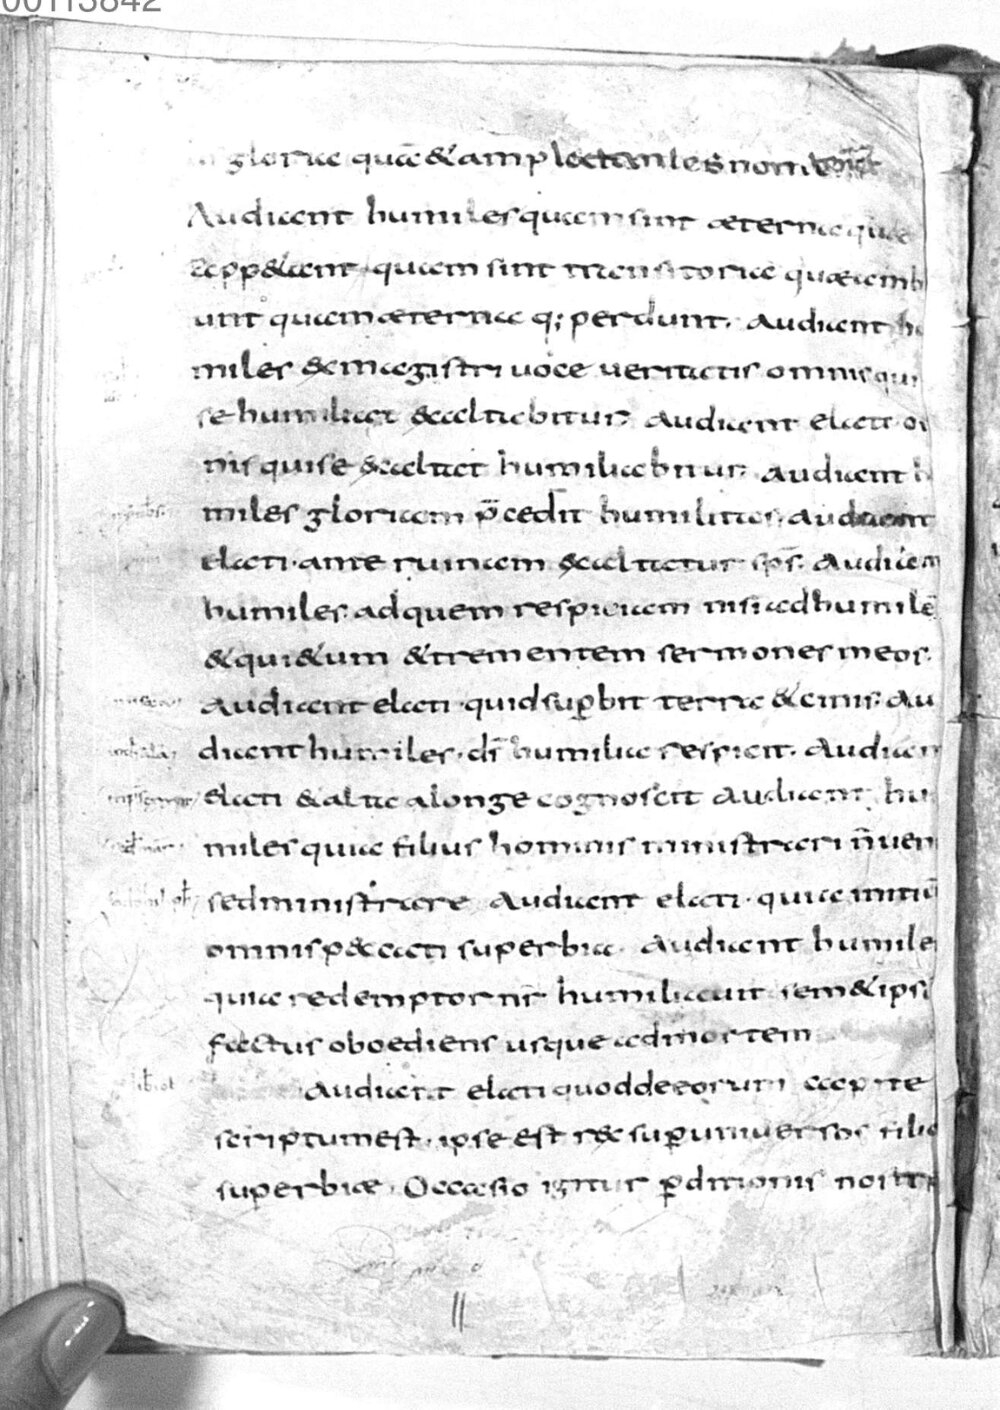 00113842
gloriae quā & amplectantes non tenēt
Audiant humiles quam sint aeterna quae
appetant quam sint transitoria quae amb
unt quam aeterna q; perdunt. Audiant hu
miles & magistri voce veritatis omnis qui
se humiliat exaltabitur. Audiant elati om
nis qui se exaltat humiliabitur. Audiant h
miles gloriam p̄cedit humilitas. Audiant
elati. ante ruinam exaltatur sp̄s. Audian
humiles. ad quem respiciam nisi ad humilē
& quietum & trementem sermones meos.
Audiant elati. quid sup̱bit terra & cinis. Au
diant humiles. d̄s humilia respicit. Audian
elati & alta a longe cognoscit Audiant hu
miles quia filius hominis ministrari n̄ ven
sed ministrare Audiant elati. quia initiū
omnis peccati superbia. Audiant humile
quia redemptor nr̄ humiliavit semetipsū
factus oboediens usque ad mortem
Audiant elati quod de eorum capite
scriptum est. ipse est rex sup̱ universos filio
superbiae. Occasio igitur p̱ditionis nostr